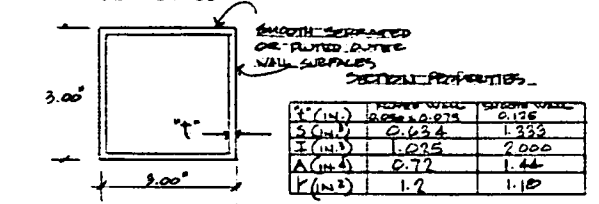 SMOOTH SERRATED
OR FLUTED OUTER
WALL SURFACES
SECTION PROPERTIES
3.00"
"t"
3.00"
"t" (IN.) FLUTED WALL SMOOTH WALL 0.125
S (IN.³) 0.634 1.333
I (IN.³) 1.025 2.000
A (IN.⁴) 0.72 1.44
r (IN²) 1.2 1.18